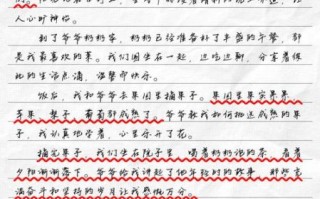 人心旷神怡。
到了爷爷奶奶家，奶奶已经准备好了丰盛的午餐，都
是我最喜欢的菜。我们围坐在一起，边吃边聊，分享着彼
此的生活点滴，温馨而快乐。
饭后，我和爷爷去果园里摘果子。果园里果实累累，
苹果、梨子、葡萄都成熟了。爷爷教我如何挑选成熟的果
子，我认真地学着，心里乐开了花。
摘完果子，我们坐在院子里，喝着奶奶泡的茶，看着
夕阳渐渐落下。爷爷给我讲起了他年轻时的故事，那些充
满奋斗和坚持的岁月让我感慨万分。